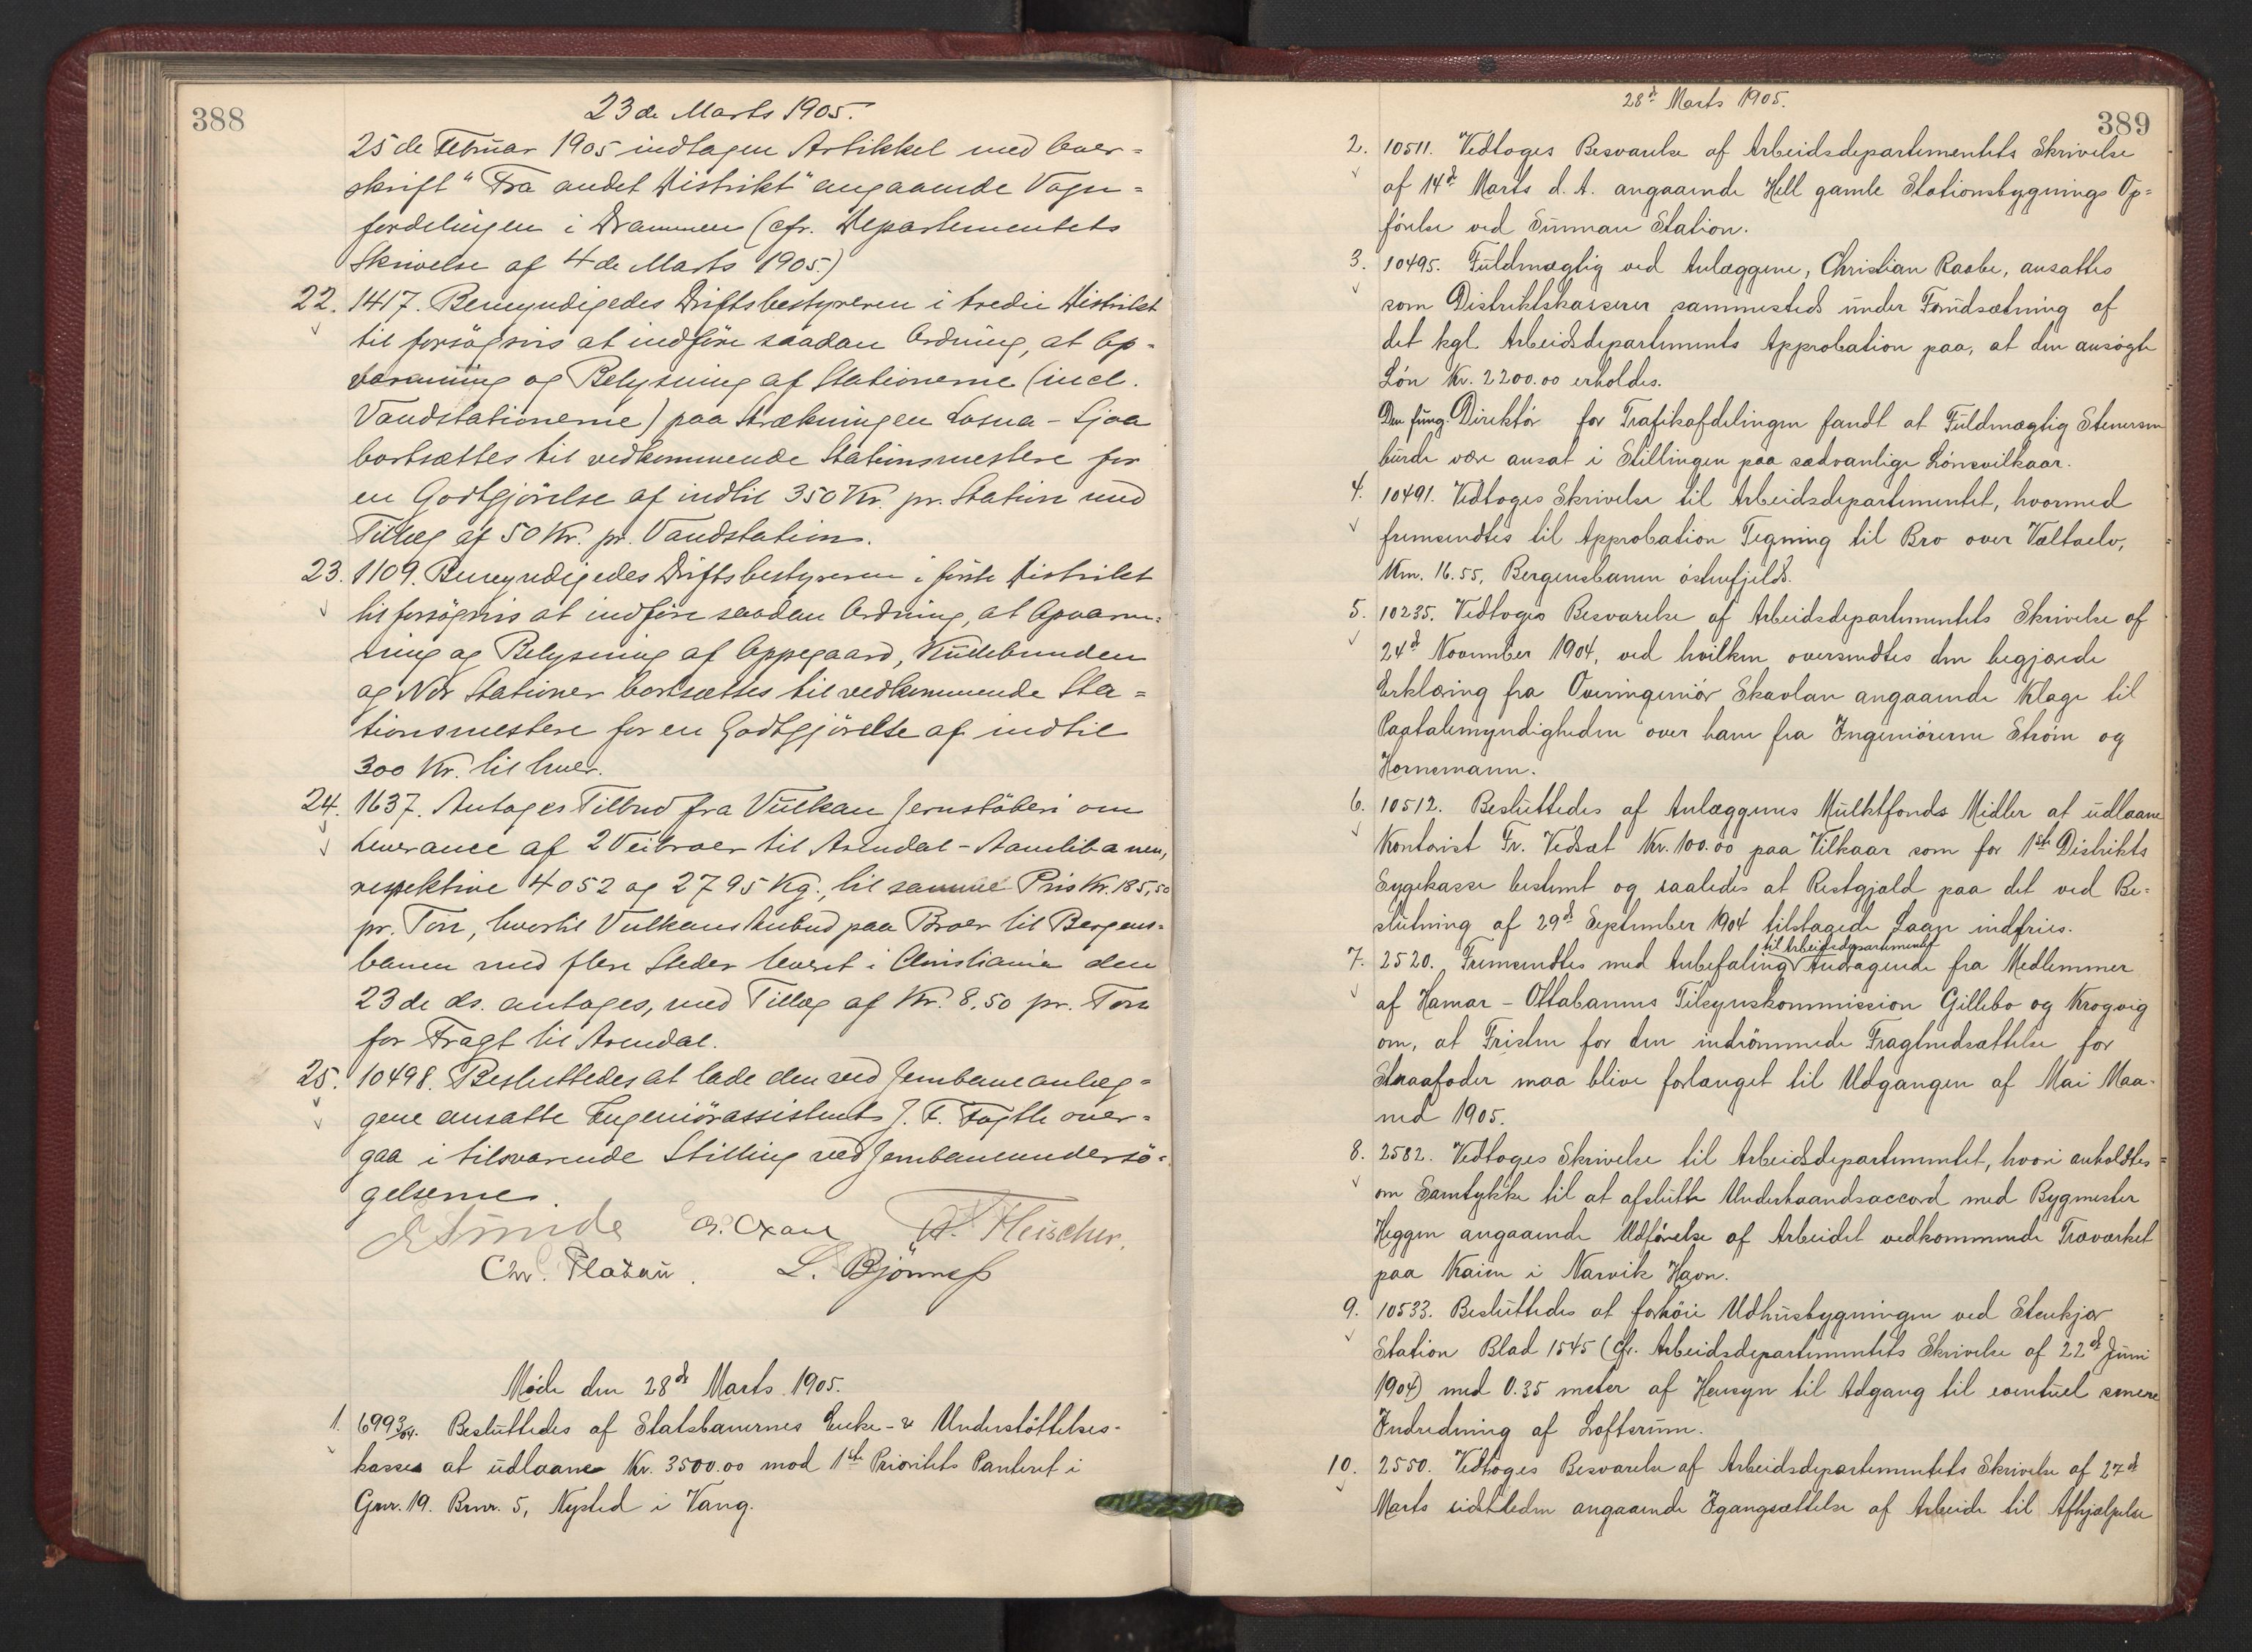 388
23de Marts 1905.
25de Februar 1905 indtagen Artikkel med Over=
skrift "Fra andet Distrikt" angaaende Vogn=
fordelingen i Drammen (cfr. Departementets
Skrivelse af 4de Marts 1905.)
22. 1417. Bemyndigedes Driftsbestyreren i tredie Distrikt
til forsøgsvis at indføre saadan Ordning, at Op-
varmning og Belysning af Stationerne (incl.
Vandstationerne) paa Strækningen Losna - Sjoa
bortsættes til vedkommende Stationsmestere for
en Godtgjörelse af indtil 350 Kr. pr. Station med
Tillæg af 50 Kr. pr. Vandstation.
23. 1109. Bemyndigedes Driftsbestyreren i første Distrikt
til forsøgsvis at indføre saadan Ordning, at Opvarm=
ning og Belysning af Oppegaard,
og Nor Stationer bortsættes til vedkommende Sta=
tionsmestere for en Godtgjörelse af indtil
300 Kr. til hver.
24. 1637. Antages Tilbud fra Vulkan Jernstöberi om
Leverance af 2 Veibroer til Arendal-Aamlibanen,
respektive 4052 og 2795 Kg., til samme Pris Kr. 185,50
pr. Ton, hvortil Vulkans Anbud paa Broer til Bergens-
banen med flere Steder leveret i Christiania den
23de ds. antages, med Tillæg af Kr. 8.50 pr. Ton
for Fragt til Arendal.
25. 10498. Besluttedes at lade den ved Jernbaneanlæg=
gene ansatte Ingeniörassistent J. F. over=
gaa i tilsvarende Stilling ved Jernbaneundersö=
gelserne.
E Sunde G. Oxaal A. Fleischer.
Chr. Platou. L. Bjönness
Møde den 28de Marts 1905.
1. 6993/04. Besluttedes af Statsbanernes Enke- & Understöttelses-
kasse at udlaane Kr. 3500.00 mod 1ste Prioritets Panteret i
Gnr. 19. Brnr. 5, Nysted i Vang.
28de Marts 1905.
389
2. 10511. Vedtoges Besvarelse af Arbeidsdepartementets Skrivelse
af 14de Marts d. A. angaaende Hell gamle Stationsbygnings Op=
førelse ved Sunnan Station.
3. 10495. Fuldmægtig ved Anlæggene, Christian Raabe, ansattes
som Distriktskasserer sammesteds under Forudsætning af
det kgl. Arbeidsdepartements Approbation paa, at den ansøgte
Løn Kr. 2200.00 erholdes.
Den fung. Direktør for Trafikafdelingen fandt at Fuldmægtig Stenersen
burde være ansat i Stillingen paa sædvanlige Lønsvilkaar.
4. 10491. Vedtoges Skrivelse til Arbeidsdepartementet, hvormed
fremsendtes til Approbation Tegning til Bro over Væltaelv,
Km. 16.55, Bergensbanen østenfjelds.
5. 10235. Vedtoges Besvarelse af Arbeidsdepartementets Skrivelse af
24de November 1904, ved hvilken oversendtes den begjærede
Erklæring fra Overingeniør Skavlan angaaende Klage til
Paatalemyndigheden over ham fra Ingeniørerne Strøm og
Hornemann.
6. 10512. Besluttedes af Anlæggenes Mulktfonds Midler at udlaane
Kontorist Fr. Vedsæt Kr. 100.00 paa Vilkaar som for 1ste Distrikts
Sygekasse bestemt og saaledes at Restgjæld paa det ved Be=
slutning af 29de September 1904 tilstagede Laan indfries.
til Arbeidsdepartementet
7. 2520. Fremsendtes med Anbefaling Andragende fra Medlemmer
af Hamar - Ottabanens Tilsynskommission Gillebo og Krogvig
om, at Fristen for den indrømmede Fragtnedsættelse for
Straafoder maa blive forlænget til Udgangen af Mai Maa-
ned 1905.
8. 2582. Vedtoges Skrivelse til Arbeidsdepartementet, hvori anholdtes
om Samtykke til at afslutte Underhaandsaccord med Bygmester
Heggen angaaende Udførelse af Arbeidet vedkommende Træværket
paa Kaien i Narvik Havn.
9. 10533. Besluttedes at forhöie Udhusbygningen ved Stenkjær
Station Blad 1545 (cfr. Arbeidsdepartementets Skrivelse af 22de Juni
1904) med 0.35 meter af Hensyn til Adgang til eventuel senere
Indredning af Loftsrum.
10. 2550. Vedtoges Besvarelse af Arbeidsdepartementets Skrivelse af 27de
Marts sidstleden angaaende Igangsættelse af Arbeide til Afhjælpelse